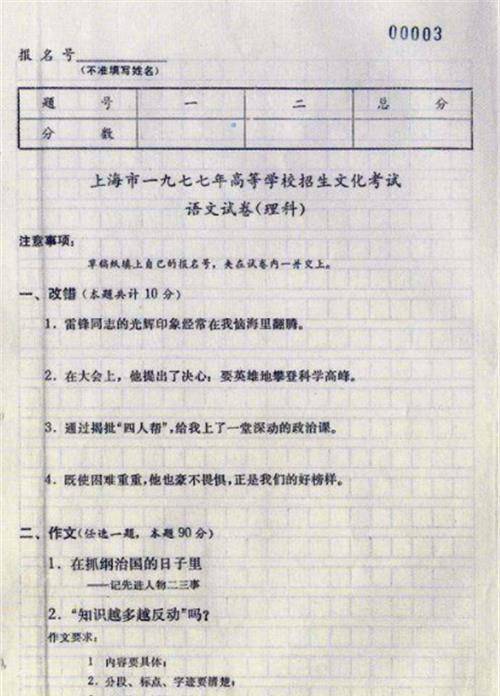 00003
报名号
(不准填写姓名)
题 号 一 二 总 分
分 数
上海市一九七七年高等学校招生文化考试
语文试卷(理科)
注意事项:
草稿纸填上自己的报名号，夹在试卷内一并交上。
一、改错 (本题共计 10 分)
1. 雷锋同志的光辉印象经常在我恼海里翻腾。
2. 在大会上，他提出了决心：要英雄地攀登科学高峰。
3. 通过揭批“四人帮”，给我上了一堂深动的政治课。
4. 既使困难重重，他也豪不畏惧，正是我们的好榜样。
二、作文(任选一题，本题 90 分)
1. 在抓纲治国的日子里
——记先进人物二三事
2. “知识越多越反动”吗?
作文要求:
1 内容要具体；
2. 分段、标点、字迹要清楚；